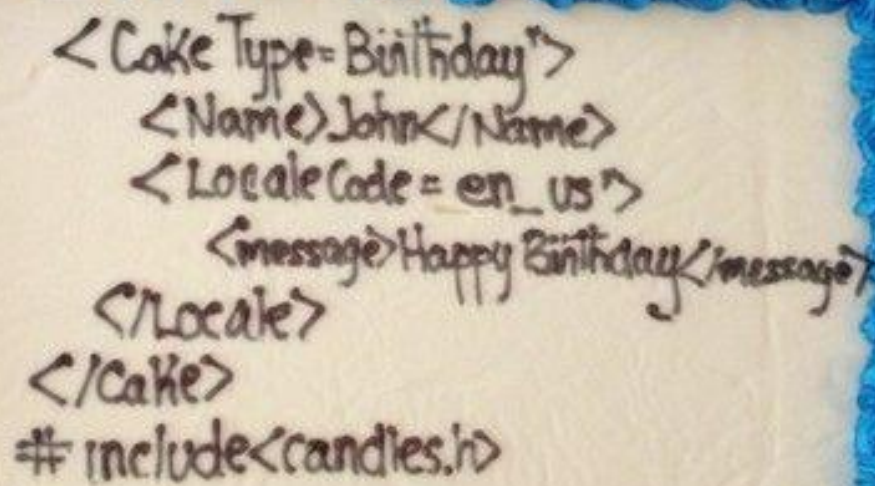 <Cake Type=Birthday">
<Name>John</Name>
<Locale Code = en_us">
<message>Happy Birthday</message>
</Locale>
</Cake>
# include<candles.h>